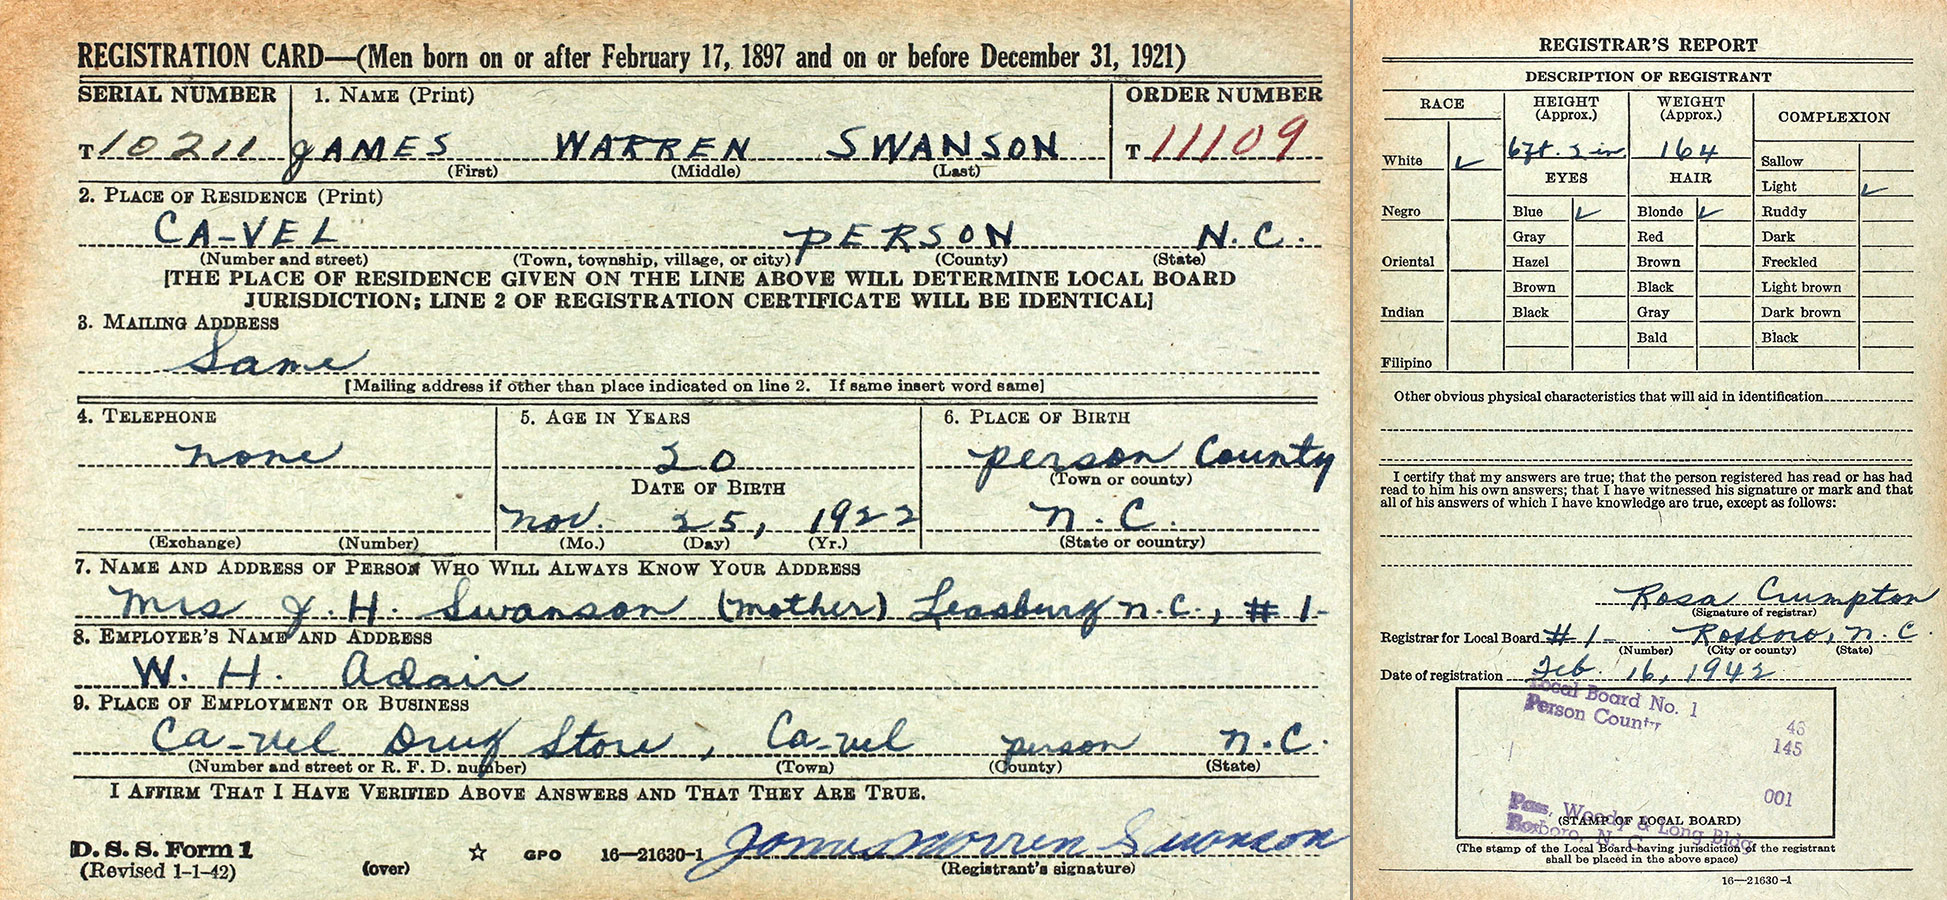 REGISTRATION CARD—(Men born on or after February 17, 1897 and on or before December 31, 1921)
SERIAL NUMBER
1. NAME (Print)
ORDER NUMBER
T 10211 JAMES WARREN SWANSON T 11109
(First) (Middle) (Last)
2. PLACE OF RESIDENCE (Print)
CA-VEL PERSON N.C.
(Number and street) (Town, township, village, or city) (County) (State)
[THE PLACE OF RESIDENCE GIVEN ON THE LINE ABOVE WILL DETERMINE LOCAL BOARD
JURISDICTION; LINE 2 OF REGISTRATION CERTIFICATE WILL BE IDENTICAL]
3. MAILING ADDRESS
Same
[Mailing address if other than place indicated on line 2. If same insert word same]
4. TELEPHONE
none
(Exchange) (Number)
5. AGE IN YEARS
20
DATE OF BIRTH
Nov. 25, 1922
(Mo.) (Day) (Yr.)
6. PLACE OF BIRTH
Person County
(Town or county)
N.C.
(State or country)
7. NAME AND ADDRESS OF PERSON WHO WILL ALWAYS KNOW YOUR ADDRESS
Mrs J. H. Swanson (mother) Leasburg N.C., #1-
8. EMPLOYER'S NAME AND ADDRESS
W. H. Adair
9. PLACE OF EMPLOYMENT OR BUSINESS
Ca-vel Drug Store, Ca-vel person N.C.
(Number and street or R. F. D. number) (Town) (County) (State)
I AFFIRM THAT I HAVE VERIFIED ABOVE ANSWERS AND THAT THEY ARE TRUE.
James Warren Swanson
D. S. S. Form 1
(Revised 1-1-42) (over) ☆ GPO 16—21630-1 (Registrant's signature)
REGISTRAR'S REPORT
DESCRIPTION OF REGISTRANT
RACE
White ✓
Negro
Oriental
Indian
Filipino
HEIGHT
(Approx.)
6 ft. 2 in.
WEIGHT
(Approx.)
164
EYES
Blue ✓
Gray
Hazel
Brown
Black
HAIR
Blonde ✓
Red
Brown
Black
Gray
Bald
COMPLEXION
Sallow
Light ✓
Ruddy
Dark
Freckled
Light brown
Dark brown
Black
Other obvious physical characteristics that will aid in identification
I certify that my answers are true; that the person registered has read or has had
read to him his own answers; that I have witnessed his signature or mark and that
all of his answers of which I have knowledge are true, except as follows:
Rosa Crumpton
(Signature of registrar)
Registrar for Local Board #1- Roxboro, N.C.
(Number) (City or county) (State)
Date of registration Feb. 16, 1942
Local Board No. 1
Person County
43
145
001
Woody & Long Bldg.
Roxboro, N. C.
(STAMP OF LOCAL BOARD)
(The stamp of the Local Board having jurisdiction of the registrant
shall be placed in the above space)
16—21630-1